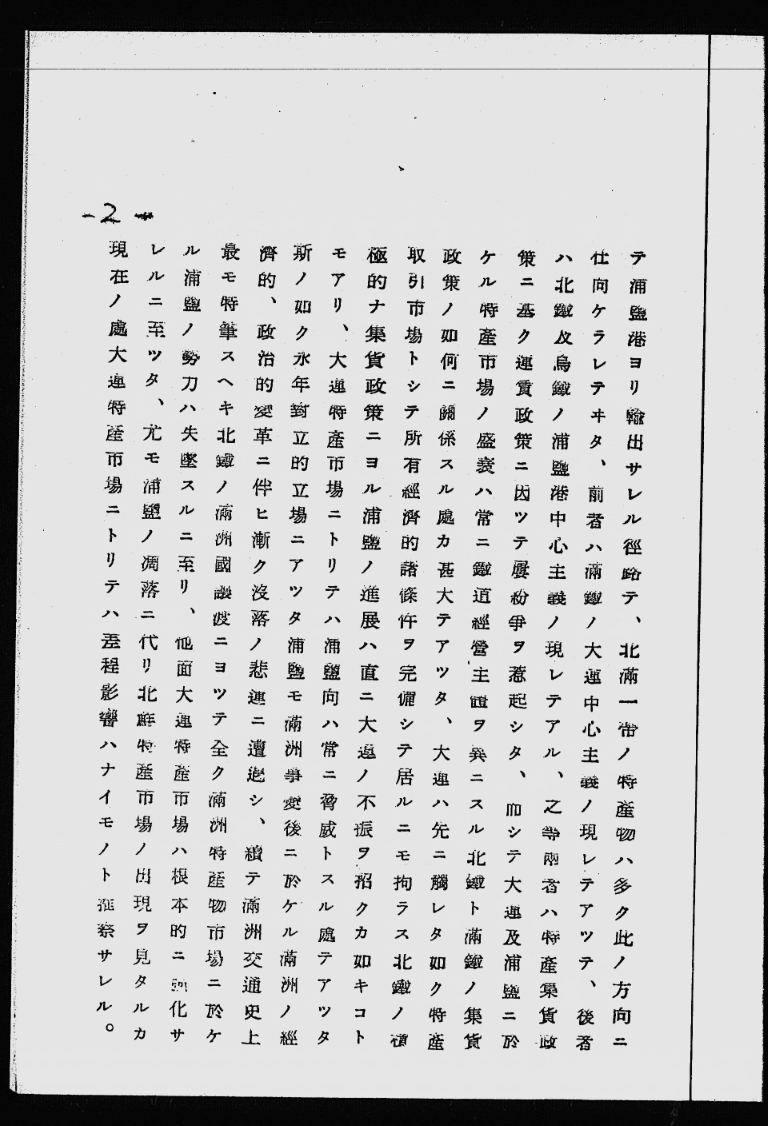 -2-
テ浦鹽港ヨリ輸出サレル徑路テ、北滿一帶ノ特產物ハ多ク此ノ方向ニ
仕向ケラレテヰタ、前者ハ滿鐵ノ大連中心主義ノ現レテアツテ、後者
ハ北鐵及烏鐵ノ浦鹽港中心主義ノ現レテアル、之等兩者ハ特產集貨政
策ニ基ク運賃政策ニ因ツテ屢紛爭ヲ惹起シタ、而シテ大連及浦鹽ニ於
ケル特產市場ノ盛衰ハ常ニ鐵道經營主體ヲ異ニスル北鐵ト滿鐵ノ集貨
政策ノ如何ニ關係スル處カ甚大テアツタ、大連ハ先ニ觸レタ如ク特產
取引市場トシテ所有經濟的諸條件ヲ完備シテ居ルニモ拘ラス北鐵ノ積
極的ナ集貨政策ニヨル浦鹽ノ進展ハ直ニ大連ノ不振ヲ招クカ如キコト
モアリ、大連特產市場ニトリテハ浦鹽向ハ常ニ脅威トスル處テアツタ
斯ノ如ク永年對立的立場ニアツタ浦鹽モ滿洲事變後ニ於ケル滿洲ノ經
濟的、政治的變革ニ伴ヒ漸ク沒落ノ悲運ニ遭遇シ、續テ滿洲交通史上
最モ特筆スヘキ北鐵ノ滿洲國讓渡ニヨツテ全ク滿洲特產物市場ニ於ケ
ル浦鹽ノ勢力ハ失墜スルニ至リ、他面大連特產市場ハ根本的ニ强化サ
レルニ至ツタ、尤モ浦鹽ノ凋落ニ代リ北鮮特產市場ノ出現ヲ見タルカ
現在ノ處大連特產市場ニトリテハ差程影響ハナイモノト推察サレル。